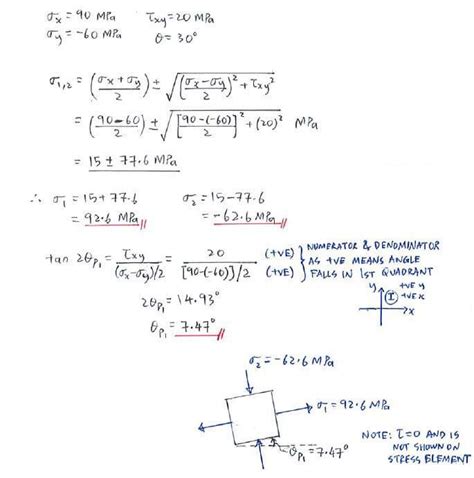 σx = 90 MPa τxy = 20 MPa
σy = -60 MPa θ = 30°
σ1,2 = ((σx + σy)/2) ± √(((σx - σy)/2)² + τxy²)
= ((90 - 60)/2) ± √([(90 - (-60))/2]² + (20)²) MPa
= 15 ± 77.6 MPa
∴ σ1 = 15 + 77.6 σ2 = 15 - 77.6
= 92.6 MPa = -62.6 MPa
tan 2θP1 = τxy/((σx - σy)/2) = 20/([90 - (-60)]/2) (+VE) (+VE) } NUMERATOR & DENOMINATOR
AS +VE MEANS ANGLE
FALLS IN 1ST QUADRANT
2θP1 = 14.93°
y I +VE y
+VE x
x
θP1 = 7.47°
σ2 = -62.6 MPa
σ1 = 92.6 MPa
θP1 = 7.47°
NOTE: τ=0 AND IS
NOT SHOWN ON
STRESS ELEMENT